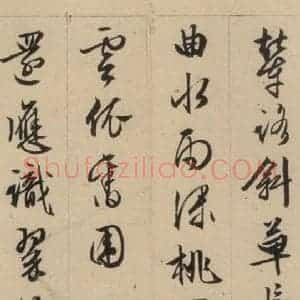 輦路斜草
曲水雨深桃
雲依舊
還應識翠
Shufaziliao.com